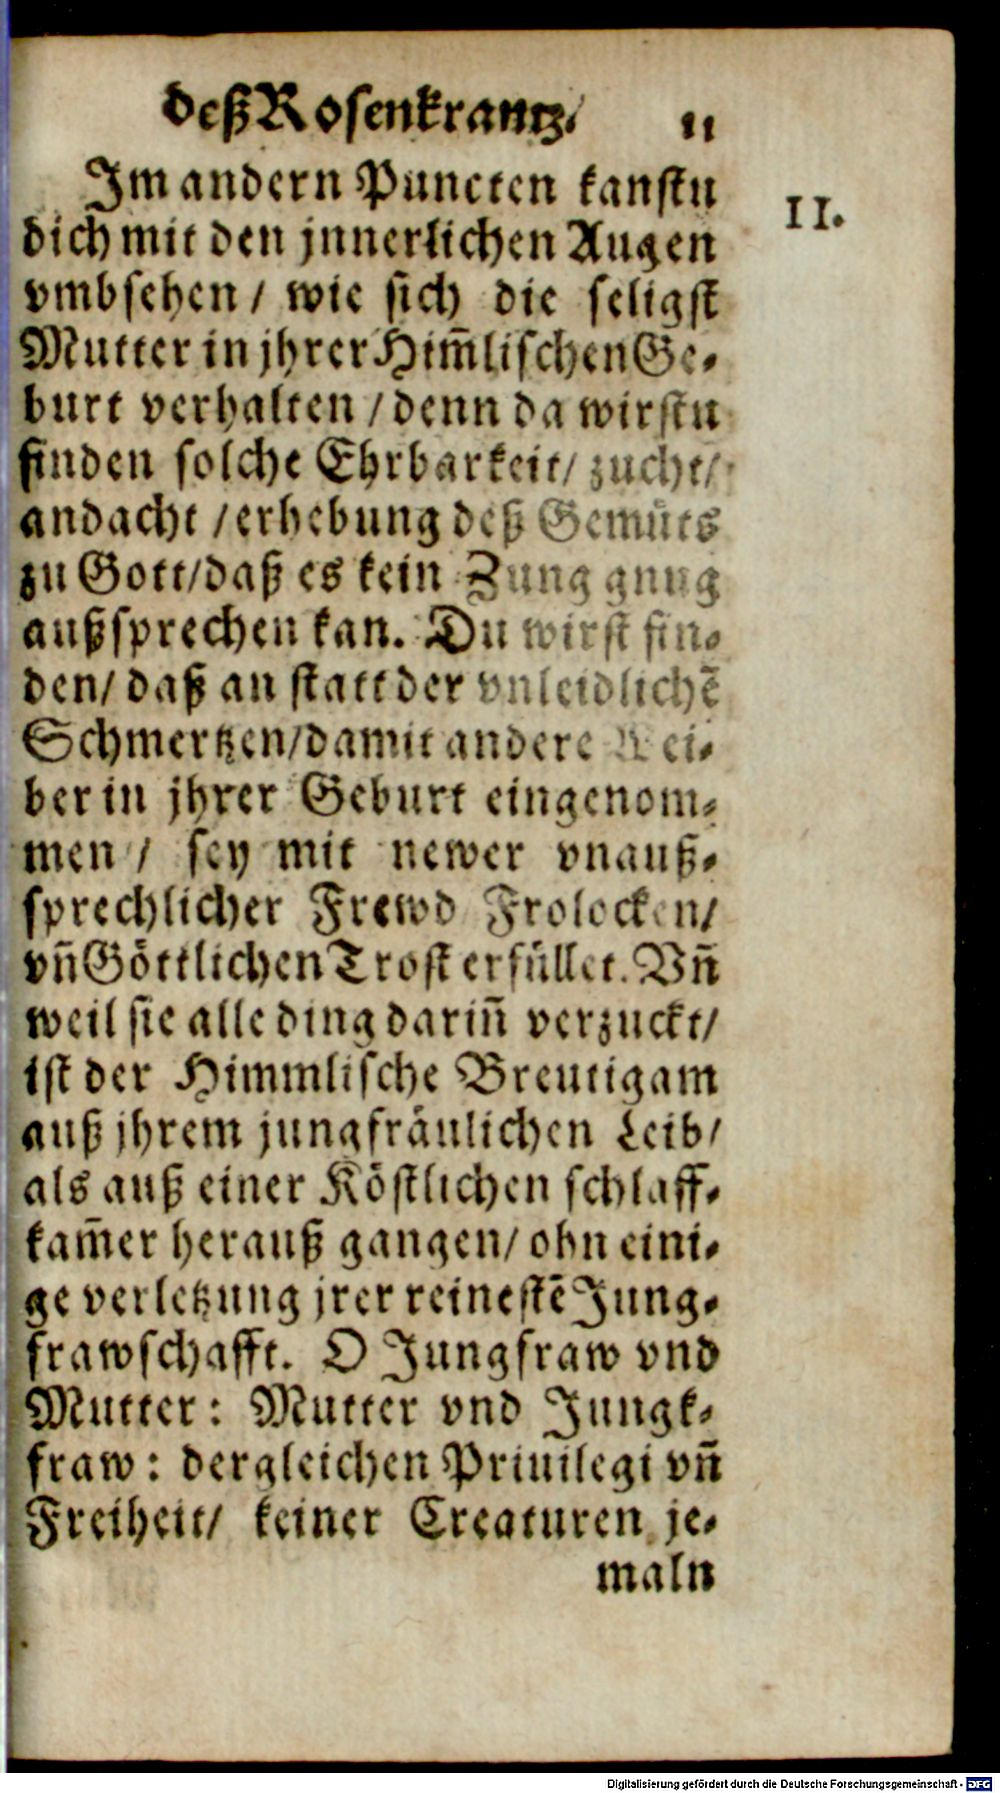 deß Rosenkrantz. 11
Im andern Puncten kanstu
II.
dich mit den jnnerlichen Augen
vmbsehen / wie sich die seligst
Mutter in jhrer Him̄lischen Ge-
burt verhalten / denn da wirstu
finden solche Ehrbarkeit / zucht /
andacht / erhebung deß Gemüts
zu Gott / daß es kein Zung gnug
außsprechen kan. Du wirst fin-
den / daß an statt der vnleidlichē
Schmertzen / damit andere Wei-
ber in jhrer Geburt eingenom-
men / sey mit newer vnauß-
sprechlicher Frewd Frolocken /
vn̄ Göttlichen Trost erfüllet. Vn̄
weil sie alle ding darin̄ verzuckt /
ist der Himmlische Breutigam
auß jhrem jungfräulichen Leib /
als auß einer Köstlichen schlaff-
kam̄er herauß gangen / ohn eini-
ge verletzung jrer reinestē Jung-
frawschafft. O Jungfraw vnd
Mutter : Mutter vnd Jungk-
fraw : dergleichen Priuilegi vn̄
Freiheit / keiner Creaturen je-
maln
Digitalisierung gefördert durch die Deutsche Forschungsgemeinschaft - DFG